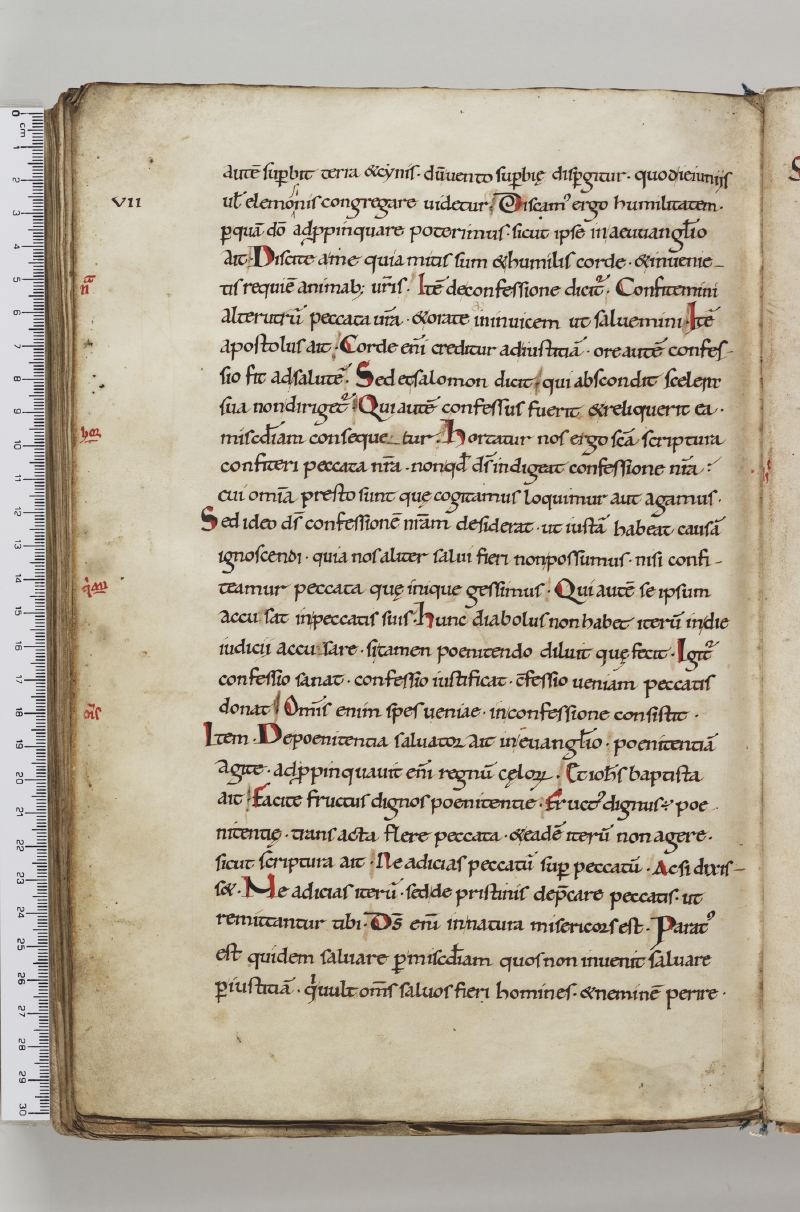 autē supbit terra & cynis · dū uento supbię dispgitur · quod ieiuniis
VII
ul̄ elemosinis congregare uidetur. Discam᷒ ergo humilitatem ·
ꝑquā dō adꝓpinquare poterimus · sicut ipse in aeuuanglio
ait · Discite a me quia mitis sum & humilis corde · & inuenie-
tis requiē animab; urīs · Itē de confessione dicit᷑ · Confitemini
alterutrū peccata urā · & orate inuicem ut saluemini · Itē
apostolus ait · Corde eni creditur ad iustitiā · ore autē confes-
sio fit ad salutē · Sed et salomon dicit · qui abscondit scelera
sua non diriget᷑ · Qui autē confessus fuerit & reliquerit ea ·
miscd̄iam conseque_tur · Hortatur nos ergo scā scriptura
confiteri peccata nrā · non qd̄ ds̄ indigeat confessione nrā ·
cui omīa presto sunt quę cogitamus loquimur aut agamus ·
Sed ideo ds̄ confessionē nrām desiderat · ut iustā habeat causā
ignoscendi · quia nos aliter salui fieri non possumus · nisi confi-
teamur peccata quę inique gessimus · Qui autē se ipsum
accusat in peccatis suis · hunc diabolus non habet iterū in die
iudicii accusare · si tamen poenitendo diluit quę fecit · Igit᷑
confessio sanat · confessio iustificat · c̄fessio ueniam peccatis
donat · Omīs enim spes ueniae · in confessione consistit ·
Item · De poenitentia saluator ait in euanglio · poenitentiā
agite · adꝓpinquauit enī regnū cęloꝝ · Et ioh̄s baptista
ait · Facite fructus dignos poenitentie · Fruct᷒ dignus ÷ poe
nitentię · transacta flere peccata · & eadē iterū non agere ·
sicut scriptura ait · Ne adicias peccatū suꝑ peccatū · Ac si dixis-
s& · Ne adicias iterū · sed de pristinis dep̄care peccatis · ut
remittantur tibi · Ds̄ enī in natura misericors est · Parat᷒
est quidem saluare ꝑ miscd̄iam quos non inuenit saluare
ꝑ iustitiā · qui uult om̄s saluos fieri homines · & neminē perire ·